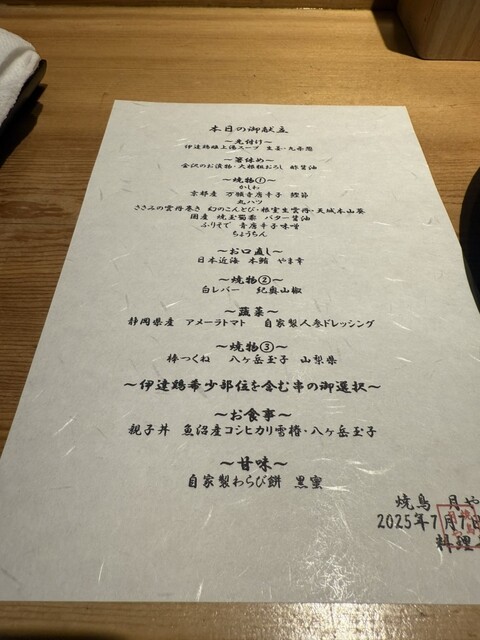 本日の御献立
～先付け～
伊達鶏極上湯スープ 生姜・九条葱
～箸休め～
金沢のお漬物・大根粗おろし 酢醤油
～焼物①～
かしわ
京都産 万願寺唐辛子 鰹節
丸ハツ
ささみの雲丹巻き 幻のこんとび・根室生雲丹・天城本山葵
国産 焼玉蜀黍 バター醤油
ふりそで 青唐辛子味噌
ちょうちん
～お口直し～
日本近海 本鮪 やま幸
～焼物②～
白レバー 紀奥山椒
～蔬菜～
静岡県産 アメーラトマト 自家製人参ドレッシング
～焼物③～
棒つくね 八ヶ岳玉子 山梨県
～伊達鶏希少部位を含む串の御選択～
～お食事～
親子丼 魚沼産コシヒカリ雪椿・八ヶ岳玉子
～甘味～
自家製わらび餅 黒蜜
焼鳥 月や
2025年7月7日
料理